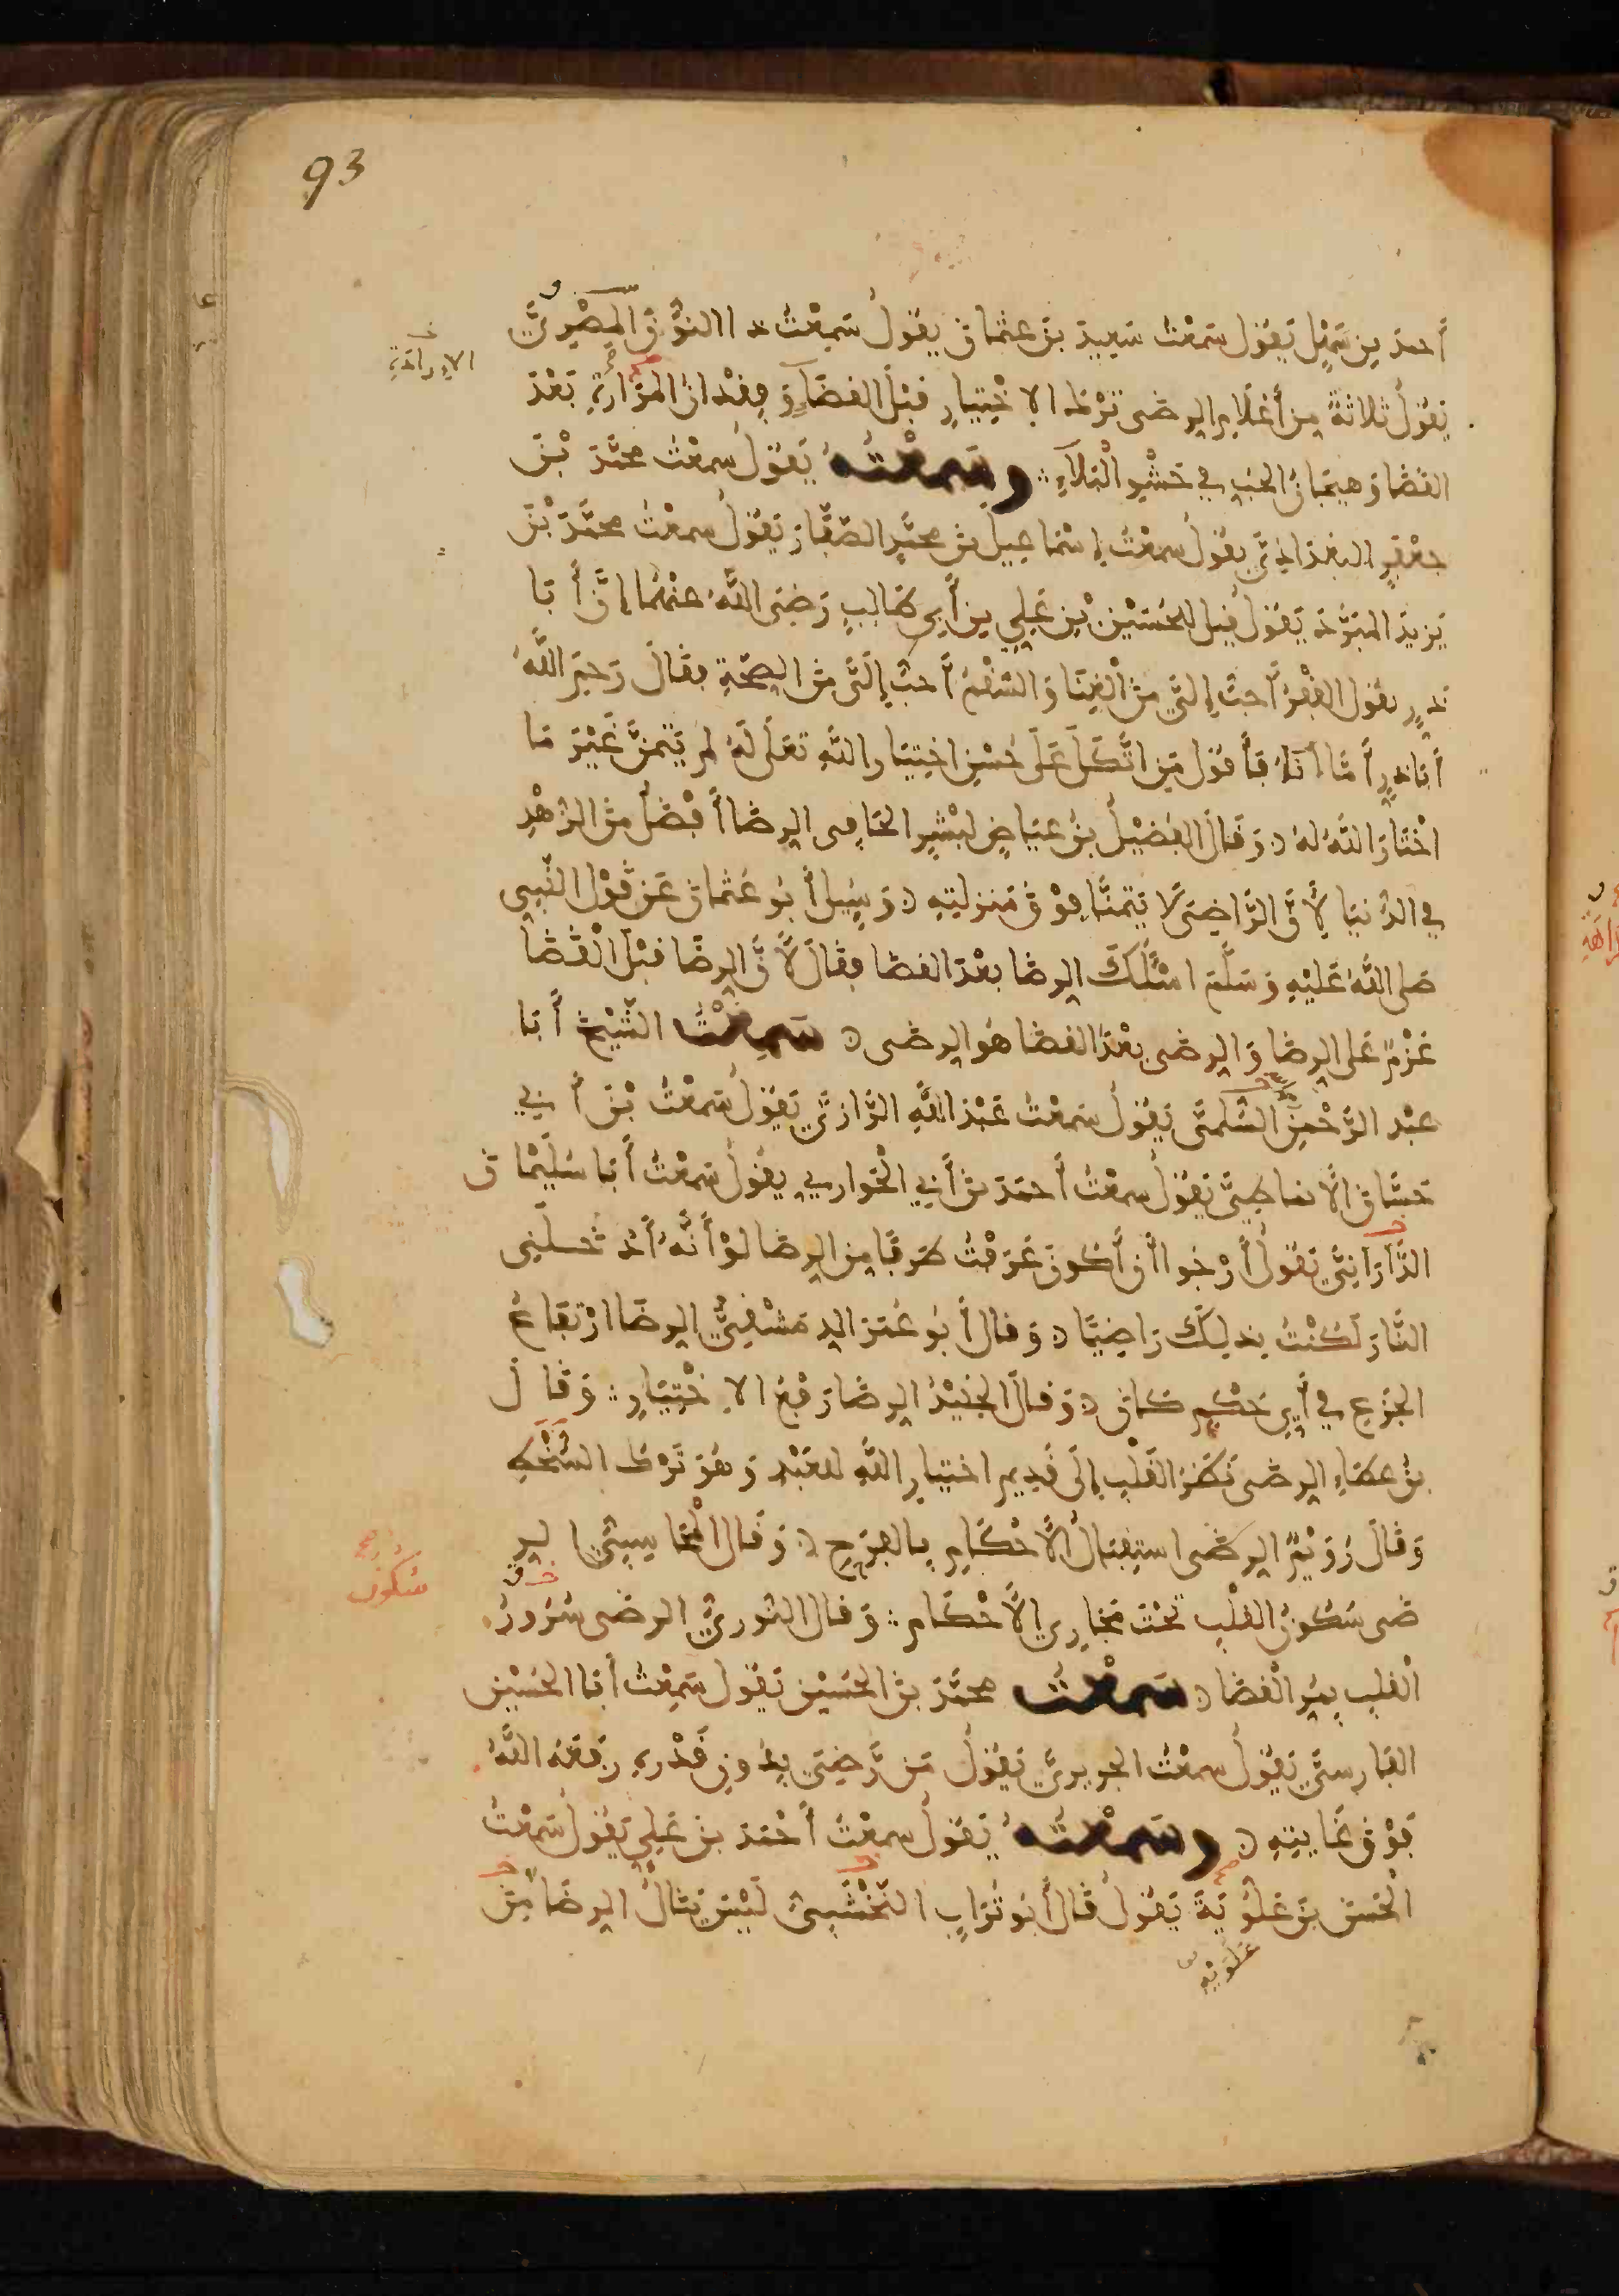 93
أحمد بن سهل يقول سمعت سعيد بن عثمان يقول سمعت ذا النون المصري
الإرادة
يقول ثلاثة من أعلام الرضى ترك الاختيار قبل القضاء وفقدان المرارة بعد
القضا وهيجان الحب في حشو البلاء وسمعته يقول سمعت محمد بن
جعفر البغداذي يقول سمعت إسماعيل بن محمد الصفار يقول سمعت محمد بن
يزيد المبرد يقول قيل للحسين بن علي بن أبي طالب رضي الله عنهما إن أبا
ذر يقول الفقر أحب إلي من الغنا والسقم أحب إلي من الصحة فقال رحم الله
أبا ذر أما أنا فأقول من اتكل على حسن اختيار الله تعلى له لم يتمن غير ما
اختار الله له وقال الفضيل بن عياض لبشر الحافي الرضا أفضل من الزهد
في الدنيا لأن الراضي لا يتمنا فوق منزلته وسيل أبو عثمان عن قول النبي
صلى الله عليه وسلم اسئلك الرضا بعد القضا فقال لأن الرضا قبل القضا
عزم على الرضا والرضى بعد القضا هو الرضى سمعت الشيخ أبا
عبد الرحمن السلمي يقول سمعت عبد الله الرازي يقول سمعت بن أبي
حسان الأنماطي يقول سمعت أحمد بن أبي الحواري يقول سمعت أبا سليمان
الداراني يقول أرجوا أن أكون عرفت طرفا من الرضا لو أنه أدخلني
النار لكنت بذلك راضيا وقال أبو عمر الدمشقي الرضا ارتفاع
الجزع في أي حكم كان وقال الجنيد الرضا رفع الاختيار وقال
بن عطاء الرضى نظر القلب إلى قديم اختيار الله للعبد وهو ترك السخط
وقال رويم الرضى استقبال الأحكام بالفرح وقال المحاسبي الر
سكون
ضى سكون القلب تحت مجاري الأحكام وقال النوري الرضى سرور
القلب بمر القضا سمعت محمد بن الحسين يقول سمعت أبا الحسين
الفارسي يقول سمعت الجريري يقول من رضي بدون قدره رفعه الله
فوق غايته وسمعته يقول سمعت أحمد بن علي يقول سمعت
الحسن بن علوية يقول قال أبو تراب النخشبي ليس ينال الرضا من
علويه